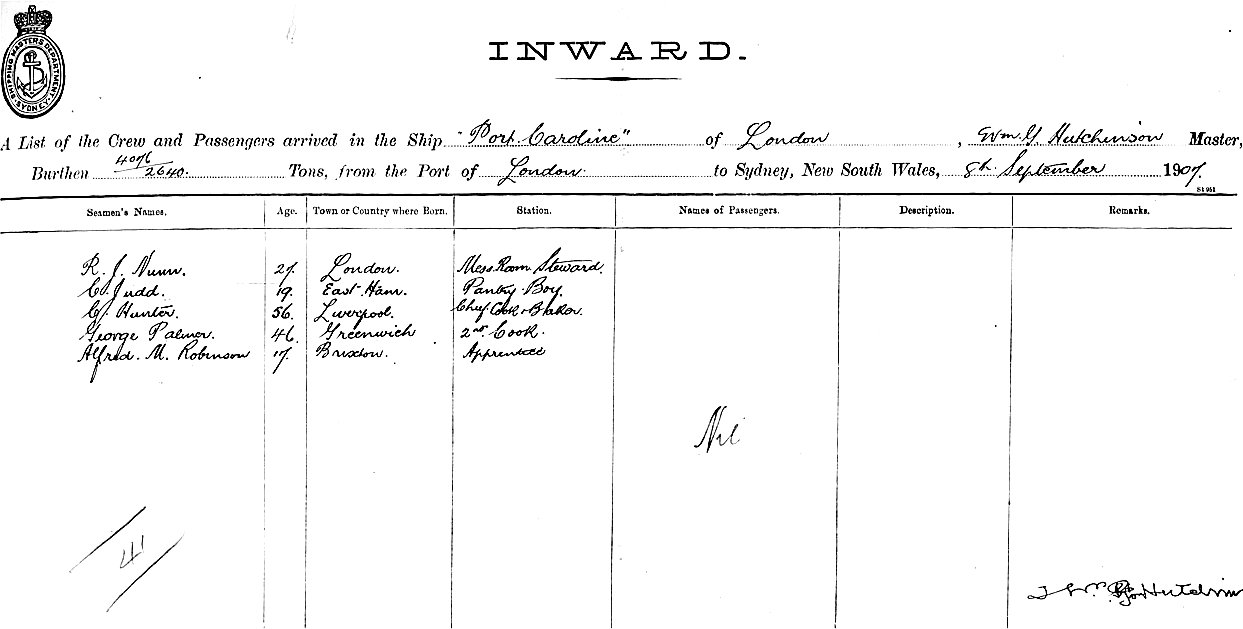 SHIPPING MASTERS DEPARTMENT. SYDNEY.
INWARD.
A List of the Crew and Passengers arrived in the Ship "Port Caroline" of London, Wm. G. Hutchinson Master,
Burthen 4076/2640. Tons, from the Port of London. to Sydney, New South Wales, 8th September 1907.
S1 951
Seamen's Names. Age. Town or Country where Born. Station. Names of Passengers. Description. Remarks.
R. J. Nunn. 27. London. Mess Room Steward.
C. Judd. 19. East Ham. Pantry Boy.
C. Hunter. 56. Liverpool. Chief Cook & Baker.
George Palmer. 46. Greenwich 2nd Cook.
Alfred. M. Robinson 17. Brixton. Apprentice
Nil
41